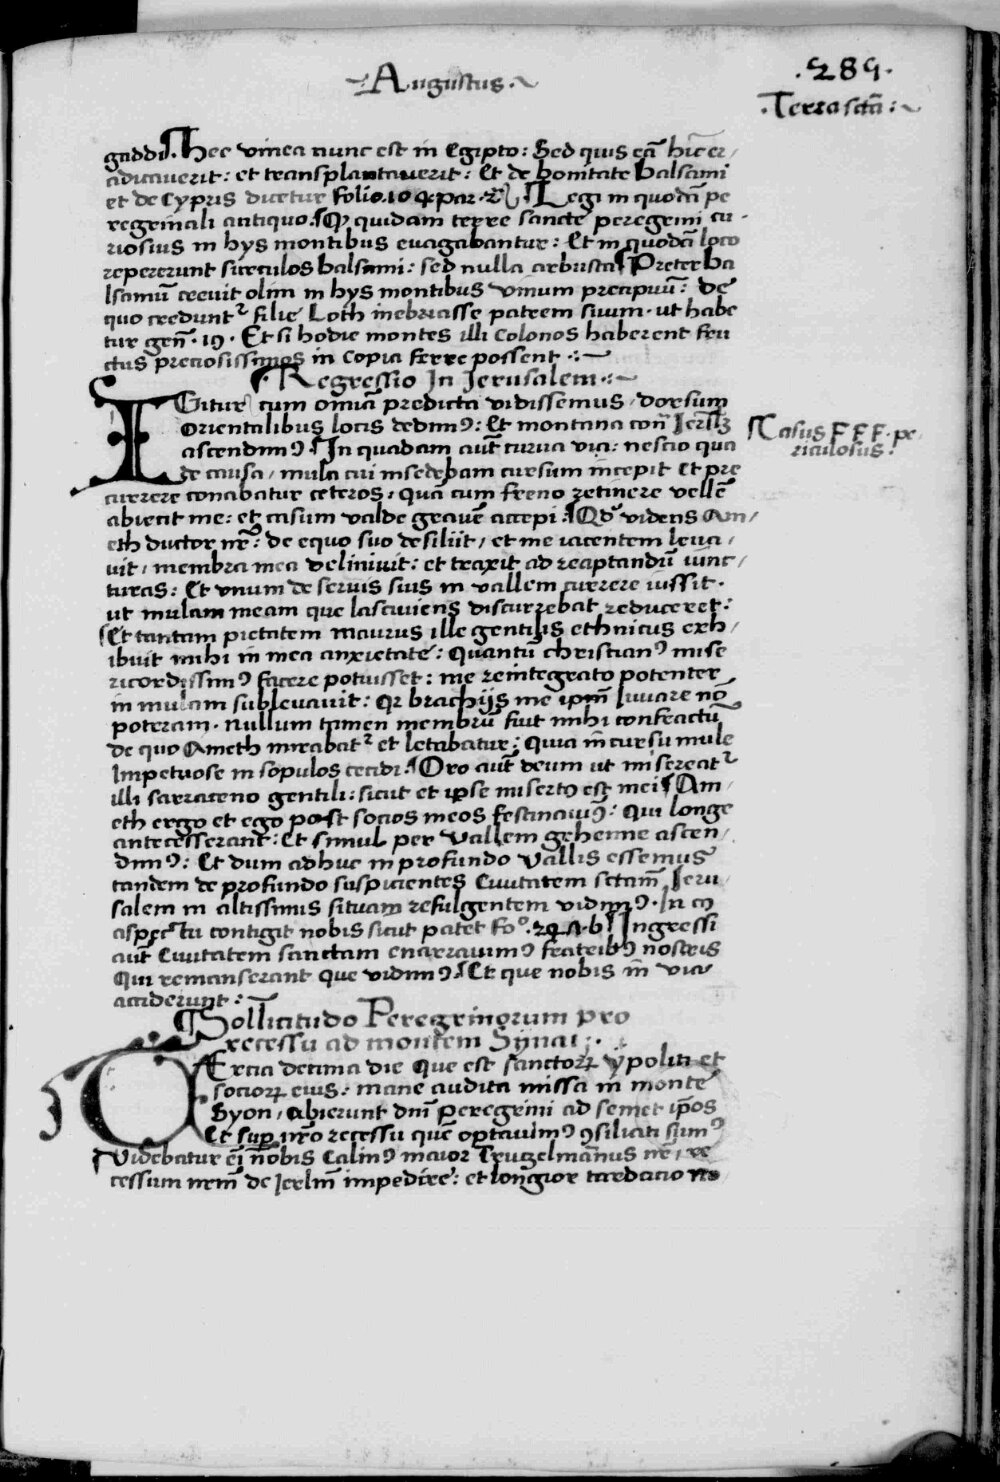 Augustus
285
Terra sctā
gaddi. Hec vinea nunc est in Egipto: Sed quis eā hīc er/
adicaverit: et transplantaverit: Et de bonitate balsami
et de Cypris dicetur folio. 104 par. 2. Legi in quodā pe
regrinali antiquo. Q quidam terre sancte peregrini cu
riosius in hys montibus evagabantur: Et in quodā loco
repererunt surculos balsami: sed nulla arbusta Preter ba
lsamū crevit olim in hys montibus vinum precipuū: de
quo credunt filie Loth inebriasse patrem suum. ut habe
tur geñ. 19. Et si hodie montes illi colonos haberent fru
ctus preciosissimos in copia ferre possent
Regressio In Jerusalem
IGitur cum omīa predicta vidissemus, dorsum
Orientalibus locis dedim9: Et montana contr̄ Jerslm
ascendim9. In quadam aut̄ curva via: nescio qua
de causa, mula cui insedebam cursum incepit et pre
currere conabatur ceteros, quā cum freno retinere vellē
abiecit me: et casum valde gravē accepi. Qd̄ videns Am/
eth ductor nr̄: de equo suo desiliit, et me iacentem leva/
vit, membra mea delinivit: et traxit ad reaptandū iunc/
turas: Et unum de servis suis in vallem currere iussit.
ut mulam meam que lasciviens discurrebat reduceret:
Et tantam pietatem maurus ille gentilis ethnicus exh/
ibuit mihi in mea anxietate: Quantū christian9 mise
ricordissim9 facere potuisset: me reintegrato potenter
in mulam sublevavit: Qr brachijs me ipm̄ iuvare nō
poteram. nullum tamen membrū fuit mihi confractū
de quo Ameth mirabat et letabatur: Quia in cursu mule
Impetuose in scopulos cecidi. Oro aut̄ deum ut misereat
illi sarraceno gentili: sicut et ipse misert9 est mei Am/
eth ergo et ego post socios meos festinavim9: Qui longe
antecesserant: Et simul per vallem gehenne ascen/
dim9: Et dum adhuc in profundo vallis essemus
tandem de profundo suspicientes Civitatem sctam̄ Jeru/
salem in altissimis sitvam refulgentem vidim9. In cu
aspectu contigit nobis sicut patet Fo. 24 A. b Ingressi
aut̄ Civitatem sanctam enarravim9 fratrib9 nostris
Qui remanserant que vidim9. Et que nobis in via
acciderunt:
Sollicitudo Peregrinorum pro
recessu ad montem Synai
TErcia decima die Que est sanctorꝝ ypoliti et
sociorꝝ eius: mane audita missa in monte
Syon, abierunt dn̄i peregrini ad semet ip̄os
Et sup nr̄o recessu quē optavim9 ꝯsiliati sum9
Videbatur ēi nobis Calin9 maior Trutzelmannus nr̄, re
cessum nrm̄ de Jerlm̄ impedire: et longior tardacio
Casus F F F. pe
riculosus.